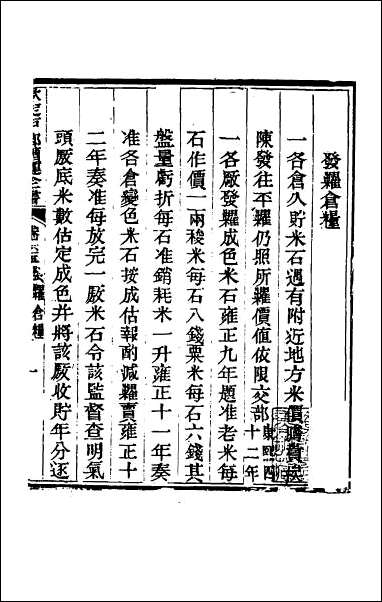 發糶倉糧
一各倉久貯米石遇有附近地方米價騰貴挨
陳發往平糶仍照所糶價值依限交部康熙四十二年
一各厫發糶成色米石雍正九年題准老米每
石作價一兩稜米每石八錢粟米每石六錢其
盤量虧折每石准銷耗米一升雍正十一年奏
准各倉變色米石按成估報酌減糶賣雍正十
二年奏准每放完一厫米石令該監督查明氣
頭厫底米數估定成色并將該厫收貯年分逐
戶部漕運全書 卷 發糶倉糧 一